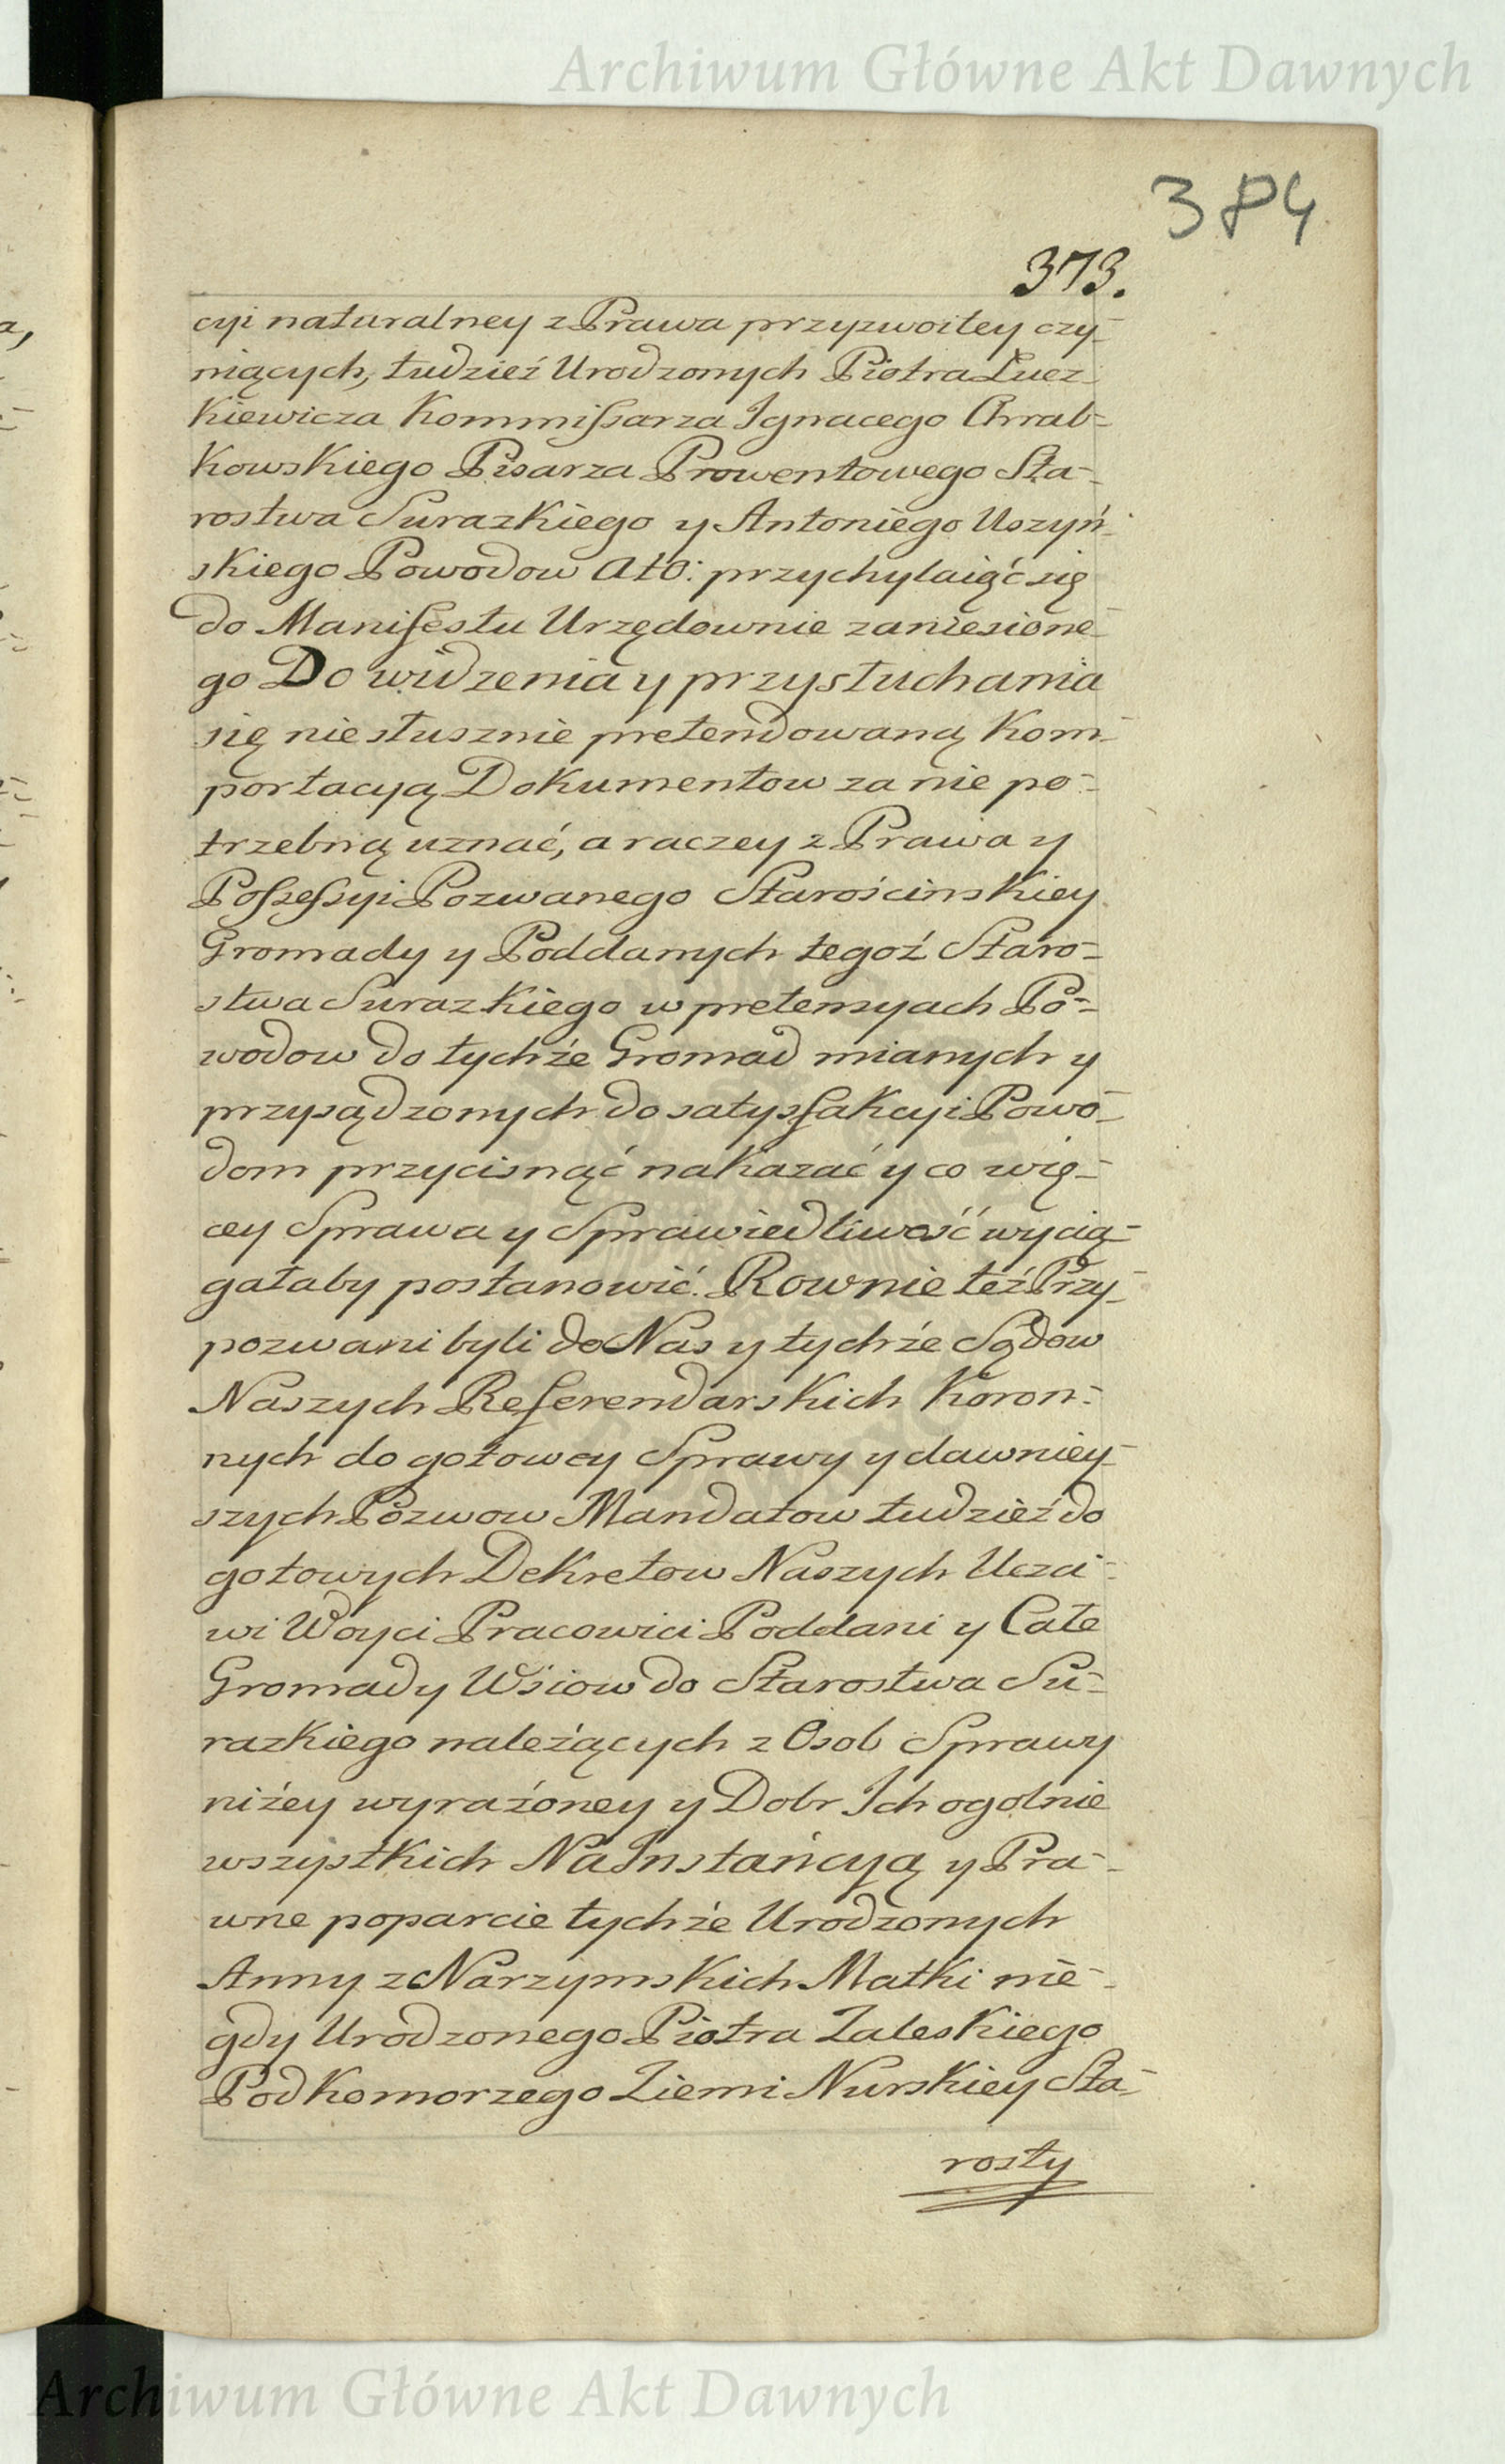 Archiwum Główne Akt Dawnych
384
373.
cyi naturalney z Prawa przyzwoitey czy-
niących, tudzież Urodzonych Piotra Łucz-
kiewicza Kommissarza Ignacego Chrab-
kowskiego Pisarza Prowentowego Sta-
rostwa Surazkiego y Antoniego Uszyń-
skiego Powodow AtO: przychylaiąć się
do Manifestu Urzędownie zaniesione-
go Do widzenia y przysłuchania
się niesłusznie pretendowaną Kom-
portacyą Dokumentow za nie po-
trzebną uznać, a raczey z Prawa y
Possessyi Pozwanego Starościnskiey
Gromady y Poddanych tegoż Staro-
stwa Surazkiego w pretensyach Po-
wodow do tychże Gromad mianych y
przysądzonych do satysfakcyi Powo-
dom przycisnąć nakazać y co wię-
cey Sprawa y Sprawiedliwość wycią-
gałaby postanowić. Rownie też Przy-
pozwani byli do Nas y tychże Sądow
Naszych Referendarskich Koron-
nych do gotowey Sprawy y dawniey-
szych Pozwow Mandatow tudzież do
gotowych Dekretow Naszych Uczci-
wi Woyci Pracowici Poddani y Całe
Gromady Wsiow do Starostwa Su-
razkiego należących z Osob Sprawy
niżey wyrażoney y Dobr Ich ogolnie
wszystkich Na Instańcyą y Pra-
wne poparcie tychże Urodzonych
Anny z Narzymskich Matki nie-
gdy Urodzonego Piotra Zaleskiego
Podkomorzego Ziemi Nurskiey Sta-
rosty
Archiwum Główne Akt Dawnych